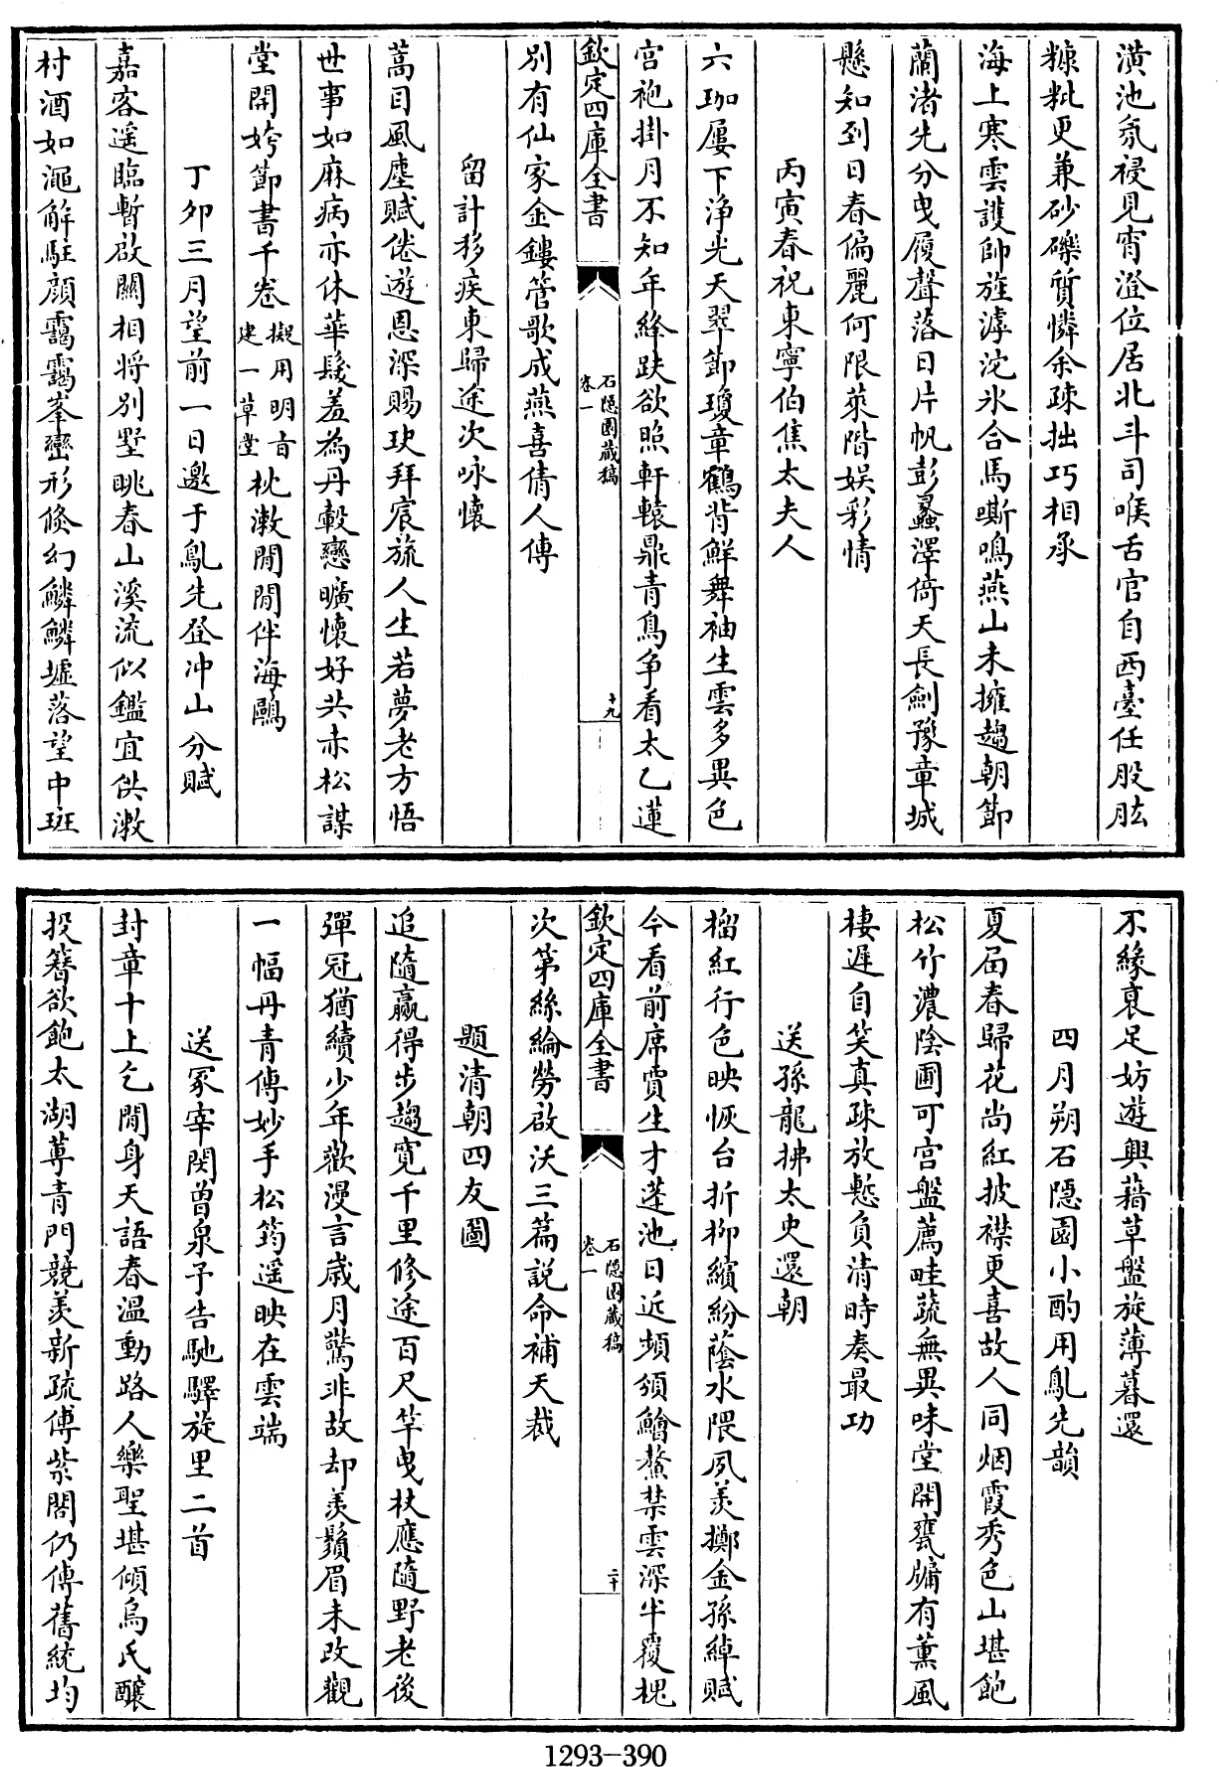 潢池氛祲見宵澄位居北斗司喉舌官自西臺任股肱
糠粃更兼砂礫質憐余疎拙巧相承
海上寒雲護帥旌滹沱氷合馬嘶鳴燕山未擁趨朝節
蘭渚先分曳履聲落日片帆彭蠡澤倚天長劍豫章城
懸知到日春偏麗何限萊階娱彩情
丙寅春祝東寧伯焦太夫人
六珈屢下浄光天翠節瓊章鶴背鮮舞袖生雲多異色
宫袍掛月不知年絳趺欲照軒轅鼎青鳥争看太乙蓮
欽定四庫全書
石隱園藏稿
卷一
十九
別有仙家金鏤管歌成燕喜倩人傳
留計移疾東歸途次咏懷
蒿目風塵賦倦遊恩深賜玦拜宸旒人生若夢老方悟
世事如麻病亦休華髮羞為丹轂戀曠懷好共赤松謀
堂開姱節書千卷擬用明㫖建一草堂枕漱閒閒伴海鷗
丁夘三月望前一日邀于鳧先登冲山分賦
嘉客遥臨暫啟關相将別墅眺春山溪流似鑑宜供漱
村酒如澠解駐顔靄靄峯巒形倐幻鱗鱗墟落望中斑
不緣衰足妨遊興藉草盤旋薄暮還
四月朔石隱園小酌用鳧先韻
夏届春歸花尚紅披襟更喜故人同烟霞秀色山堪飽
松竹濃陰圃可宫盤薦畦蔬無異味堂開甕牖有薰風
棲遲自笑真疎放慙負清時奏最功
送孫龍拂太史還朝
榴紅行色映恢台折柳繽紛蔭水隈夙羡擲金孫綽賦
今看前席賈生才蓬池日近頻頒鱠鰲禁雲深半覆槐
欽定四庫全書
石隱園藏稿
卷一
二十
次第絲綸勞啟沃三篇説命補天裁
題清朝四友圖
追隨贏得步趨寛千里修途百尺竿曳杖應隨野老後
彈冠猶續少年歡漫言歲月驚非故却羡鬚眉未改觀
一幅丹青傳妙手松筠遥映在雲端
送冢宰閔曾泉予告馳驛旋里二首
封章十上乞閒身天語春温動路人樂聖堪傾烏氏釀
投簪欲飽太湖蓴青門競羡新疏傅紫閣仍傳舊統均
1293-390